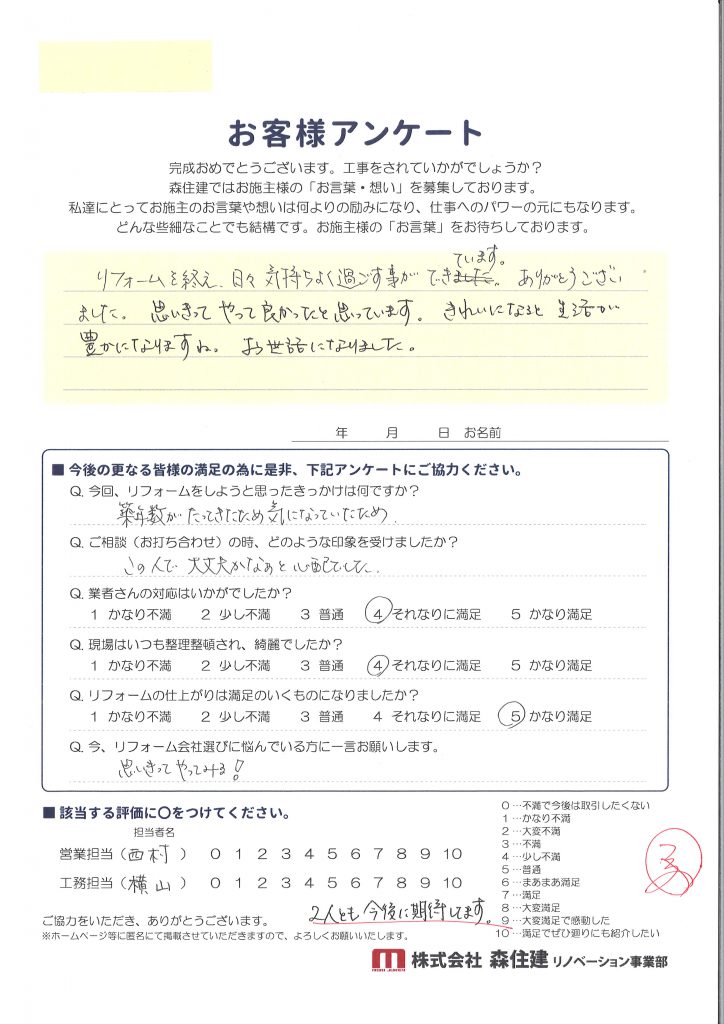 お客様アンケート
完成おめでとうございます。工事をされていかがでしょうか?
森住建ではお施主様の「お言葉・想い」を募集しております。
私達にとってお施主のお言葉や想いは何よりの励みになり、仕事へのパワーの元にもなります。
どんな些細なことでも結構です。お施主様の「お言葉」をお待ちしております。
ています。
リフォームを終え、日々気持ちよく過ごす事ができました。ありがとうござい
ました。思いきってやって良かったと思っています。きれいになると生活が
豊かになりますね。お世話になりました。
年 月 日 お名前
■ 今後の更なる皆様の満足の為に是非、下記アンケートにご協力ください。
Q. 今回、リフォームをしようと思ったきっかけは何ですか?
築年数がたってきたため気になっていたため.
Q. ご相談(お打ち合わせ)の時、どのような印象を受けましたか?
この人で大丈夫かなあと心配でした.
Q. 業者さんの対応はいかがでしたか?
1 かなり不満 2 少し不満 3 普通 4 それなりに満足 5 かなり満足
Q. 現場はいつも整理整頓され、綺麗でしたか?
1 かなり不満 2 少し不満 3 普通 4 それなりに満足 5 かなり満足
Q. リフォームの仕上がりは満足のいくものになりましたか?
1 かなり不満 2 少し不満 3 普通 4 それなりに満足 5 かなり満足
Q. 今、リフォーム会社選びに悩んでいる方に一言お願いします。
思いきってやってみる!
■ 該当する評価に〇をつけてください。
担当者名
営業担当(西村) 0 1 2 3 4 5 6 7 8 9 10
工務担当(横山) 0 1 2 3 4 5 6 7 8 9 10
2人とも今後に期待してます。
0…不満で今後は取引したくない
1…かなり不満
2…大変不満
3…不満
4…少し不満
5…普通
6…まあまあ満足
7…満足
8…大変満足
9…大変満足で感動した
10…満足でぜひ廻りにも紹介したい
ご協力をいただき、ありがとうございます。
※ホームページ等に匿名にて掲載させていただきますので、よろしくお願いいたします。
株式会社 森住建 リノベーション事業部